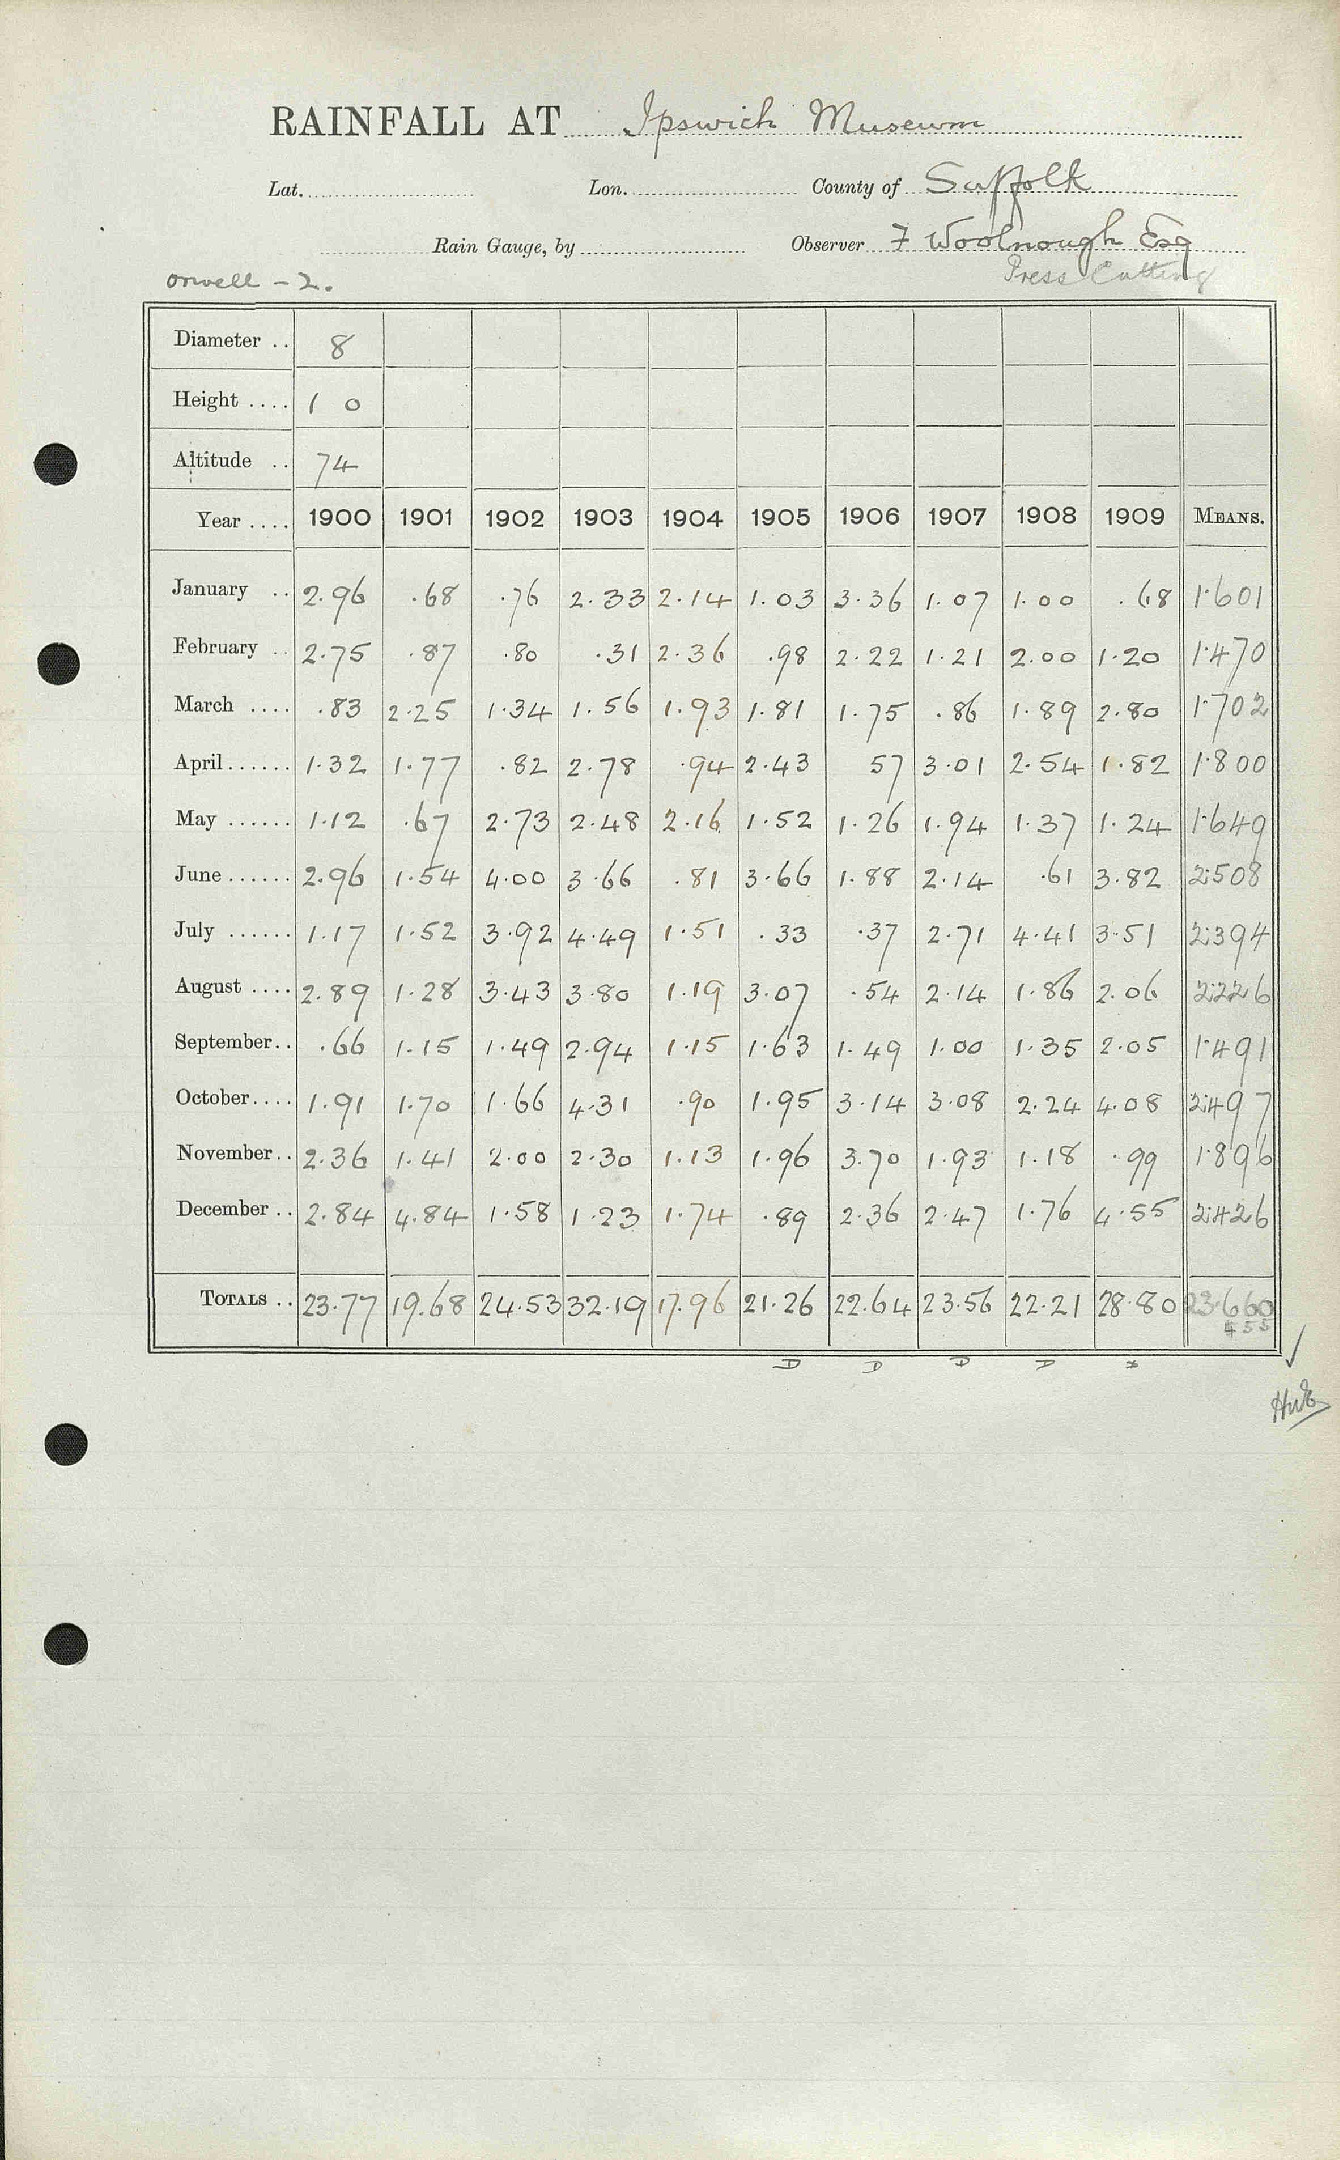 RAINFALL AT Ipswich Museum
Lat. Lon. County of Suffolk
Rain Gauge, by Observer F Woolnough Esq
Orwell - 2. Press Cutting
Diameter .. 8
Height .... 1 0
Altitude .. 74
Year .... 1900 1901 1902 1903 1904 1905 1906 1907 1908 1909 MEANS.
January .. 2.96 .68 .76 2.33 2.14 1.03 3.36 1.07 1.00 .68 1.601
February .. 2.75 .87 .80 .31 2.36 .98 2.22 1.21 2.00 1.20 1.470
March .... .83 2.25 1.34 1.56 1.93 1.81 1.75 .86 1.89 2.80 1.702
April...... 1.32 1.77 .82 2.78 .94 2.43 57 3.01 2.54 1.82 1.800
May ...... 1.12 .67 2.73 2.48 2.16 1.52 1.26 1.94 1.37 1.24 1.649
June...... 2.96 1.54 4.00 3.66 .81 3.66 1.88 2.14 .61 3.82 2.508
July ...... 1.17 1.52 3.92 4.49 1.51 .33 .37 2.71 4.41 3.51 2.394
August .... 2.89 1.28 3.43 3.80 1.19 3.07 .54 2.14 1.86 2.06 2.226
September.. .66 1.15 1.49 2.94 1.15 1.63 1.49 1.00 1.35 2.05 1.491
October.... 1.91 1.70 1.66 4.31 .90 1.95 3.14 3.08 2.24 4.08 2.497
November.. 2.36 1.41 2.00 2.30 1.13 1.96 3.70 1.93 1.18 .99 1.896
December .. 2.84 4.84 1.58 1.23 1.74 .89 2.36 2.47 1.76 4.55 2.426
TOTALS .. 23.77 19.68 24.53 32.19 17.96 21.26 22.64 23.56 22.21 28.80 23.660
D D D D